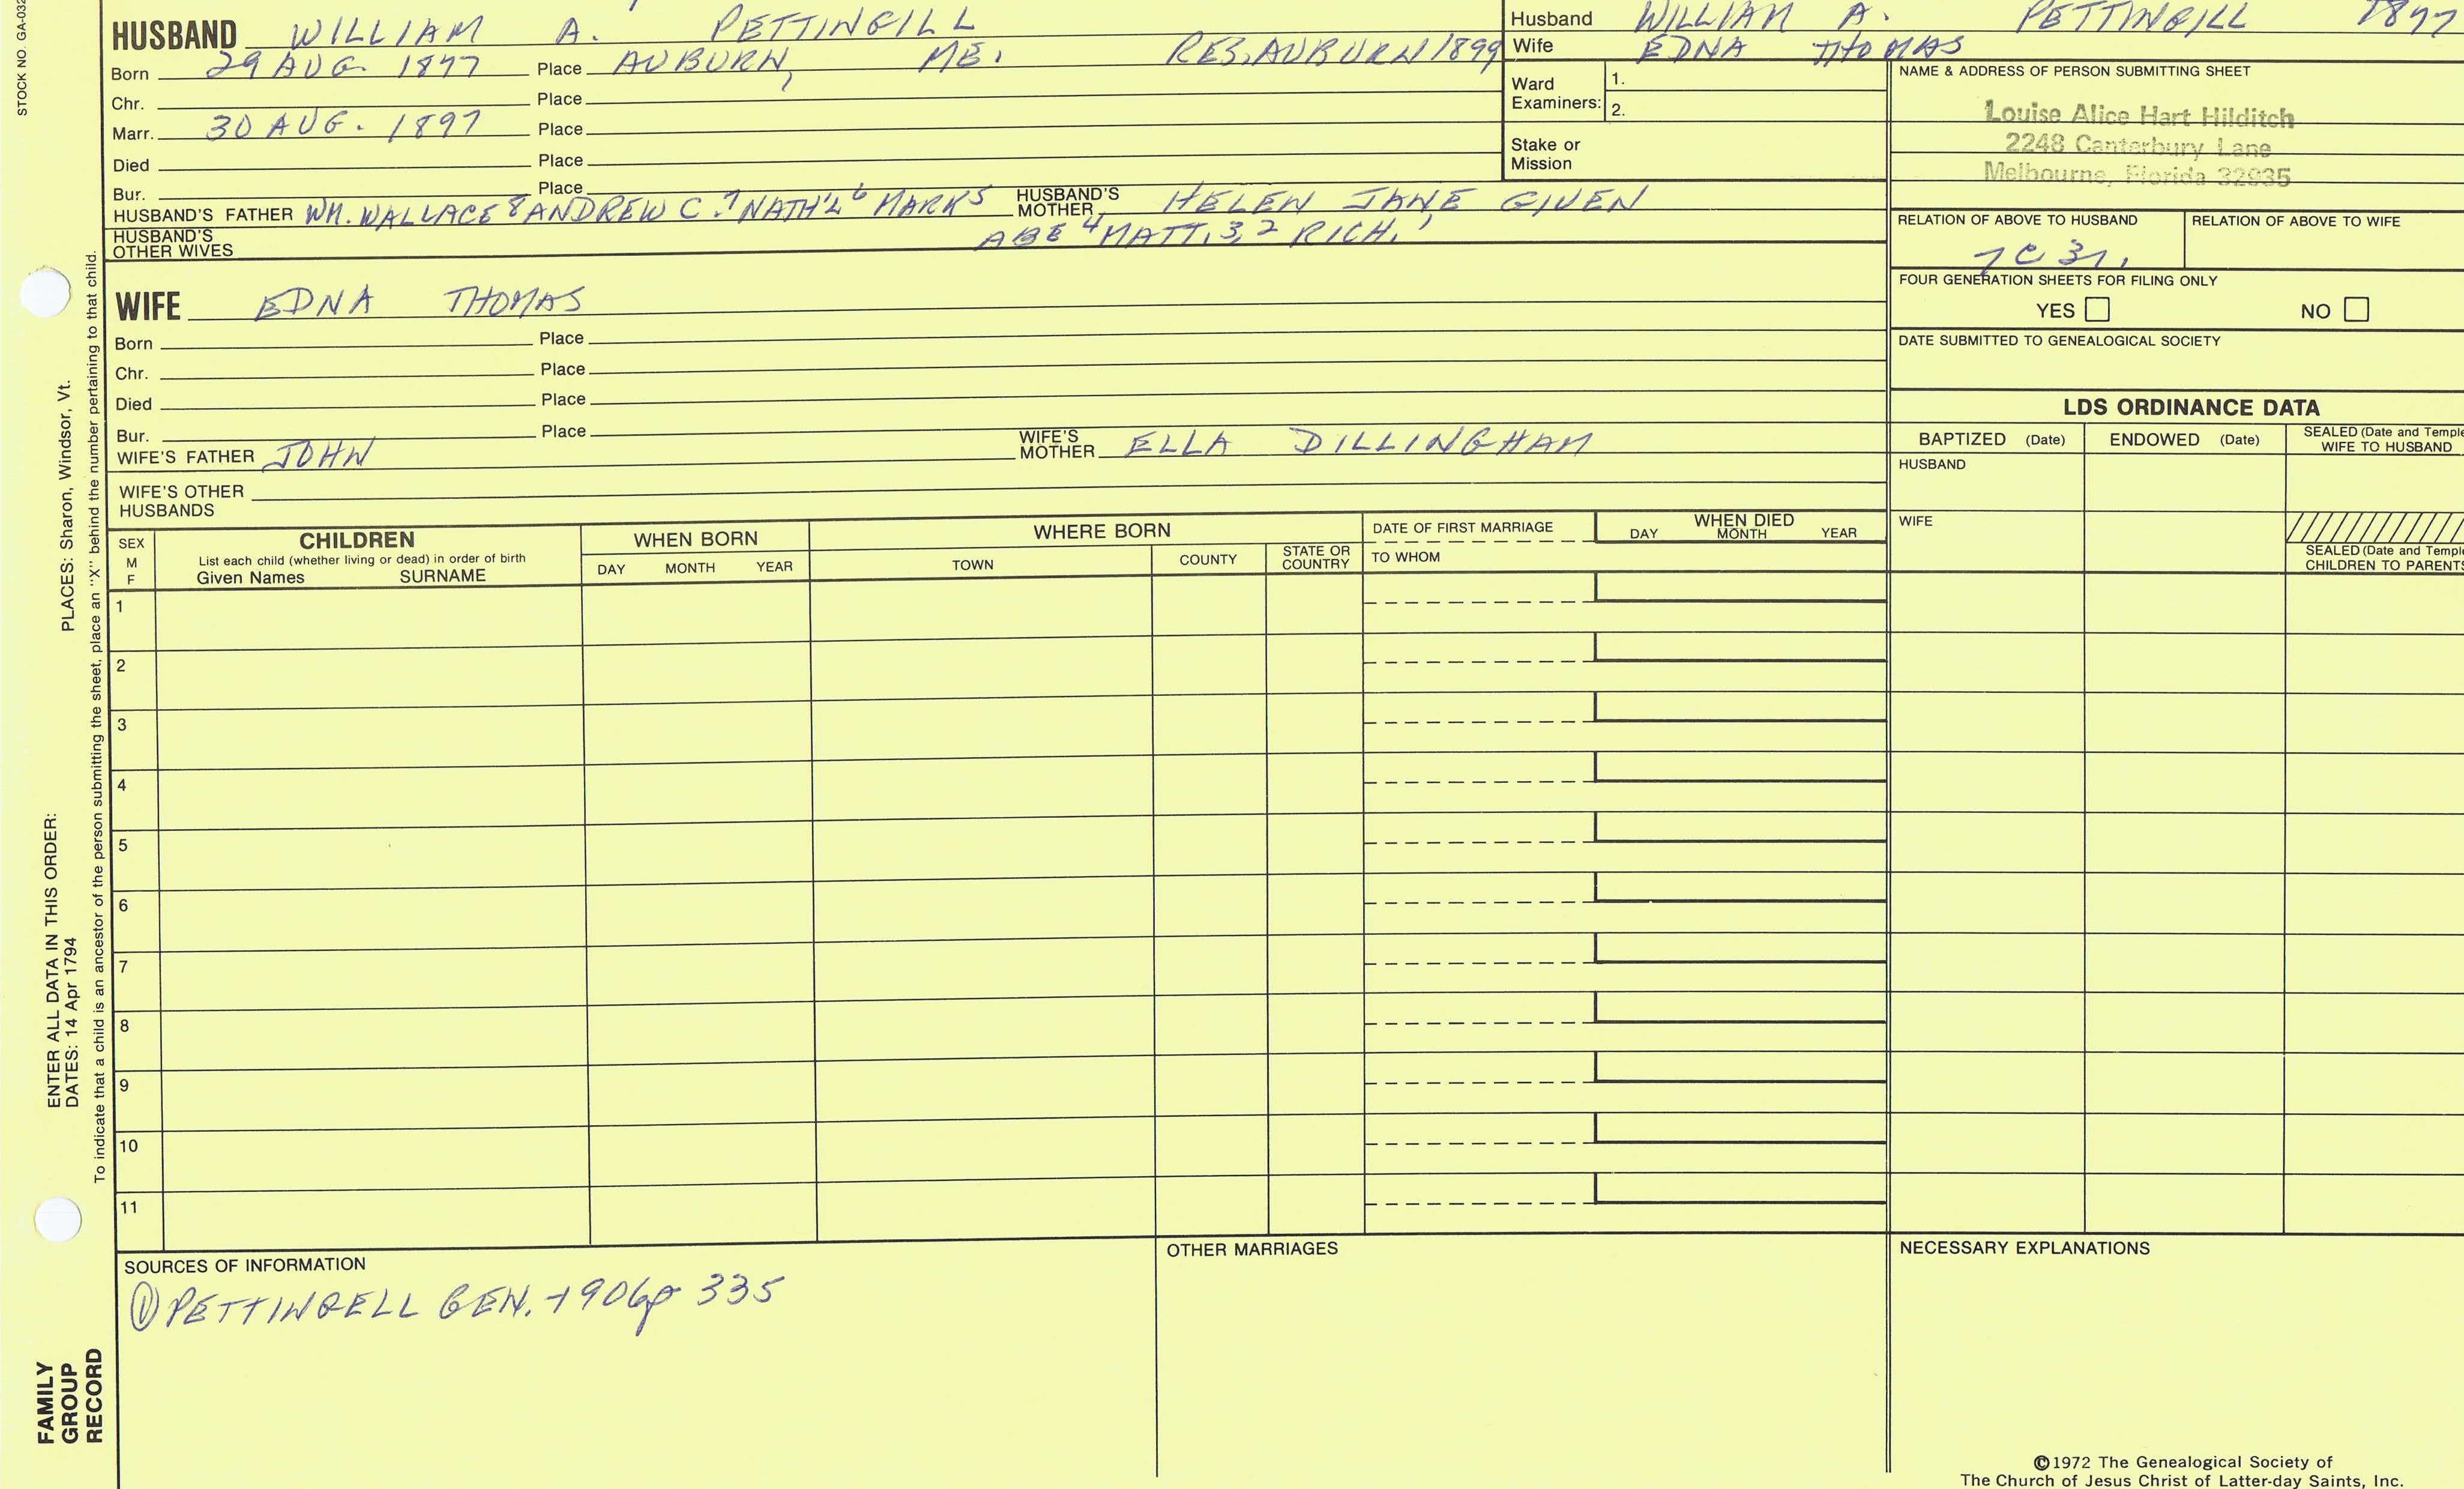 STOCK NO. GA-032
HUSBAND WILLIAM A. PETTINGILL
Born 29 AUG. 1877 Place AUBURN, ME. RES. AUBURN 1899
Chr. Place
Marr. 30 AUG. 1897 Place
Died Place
Bur. Place
HUSBAND'S FATHER WM. WALLACE 8 ANDREW C. 7 NATH'L 6 MARK 5 HUSBAND'S MOTHER HELEN JANE GIVEN
HUSBAND'S OTHER WIVES ABE 4 MATT. 3, 2 RICH. 1
Husband WILLIAM A. PETTINGILL 1877
Wife EDNA THOMAS
Ward Examiners: 1.
2.
Stake or Mission
NAME & ADDRESS OF PERSON SUBMITTING SHEET
Louise Alice Hart Hilditch
2248 Canterbury Lane
Melbourne, Florida 32935
RELATION OF ABOVE TO HUSBAND RELATION OF ABOVE TO WIFE
7C 3
FOUR GENERATION SHEETS FOR FILING ONLY
YES NO
DATE SUBMITTED TO GENEALOGICAL SOCIETY
WIFE EDNA THOMAS
Born Place
Chr. Place
Died Place
Bur. Place
WIFE'S FATHER JOHN WIFE'S MOTHER ELLA DILLINGHAM
WIFE'S OTHER HUSBANDS
LDS ORDINANCE DATA
BAPTIZED (Date) ENDOWED (Date) SEALED (Date and Temple WIFE TO HUSBAND
HUSBAND
WIFE
SEALED (Date and Temple CHILDREN TO PARENTS
SEX M F
CHILDREN
List each child (whether living or dead) in order of birth
Given Names SURNAME
WHEN BORN
DAY MONTH YEAR
WHERE BORN
TOWN COUNTY STATE OR COUNTRY
DATE OF FIRST MARRIAGE
TO WHOM
WHEN DIED
DAY MONTH YEAR
1
2
3
4
5
6
7
8
9
10
11
SOURCES OF INFORMATION
① PETTINGELL GEN. 1906 p 335
OTHER MARRIAGES
NECESSARY EXPLANATIONS
©1972 The Genealogical Society of
The Church of Jesus Christ of Latter-day Saints, Inc.
ENTER ALL DATA IN THIS ORDER:
DATES: 14 Apr 1794 PLACES: Sharon, Windsor, Vt.
To indicate that a child is an ancestor of the person submitting the sheet, place an "X" behind the number pertaining to that child.
FAMILY
GROUP
RECORD